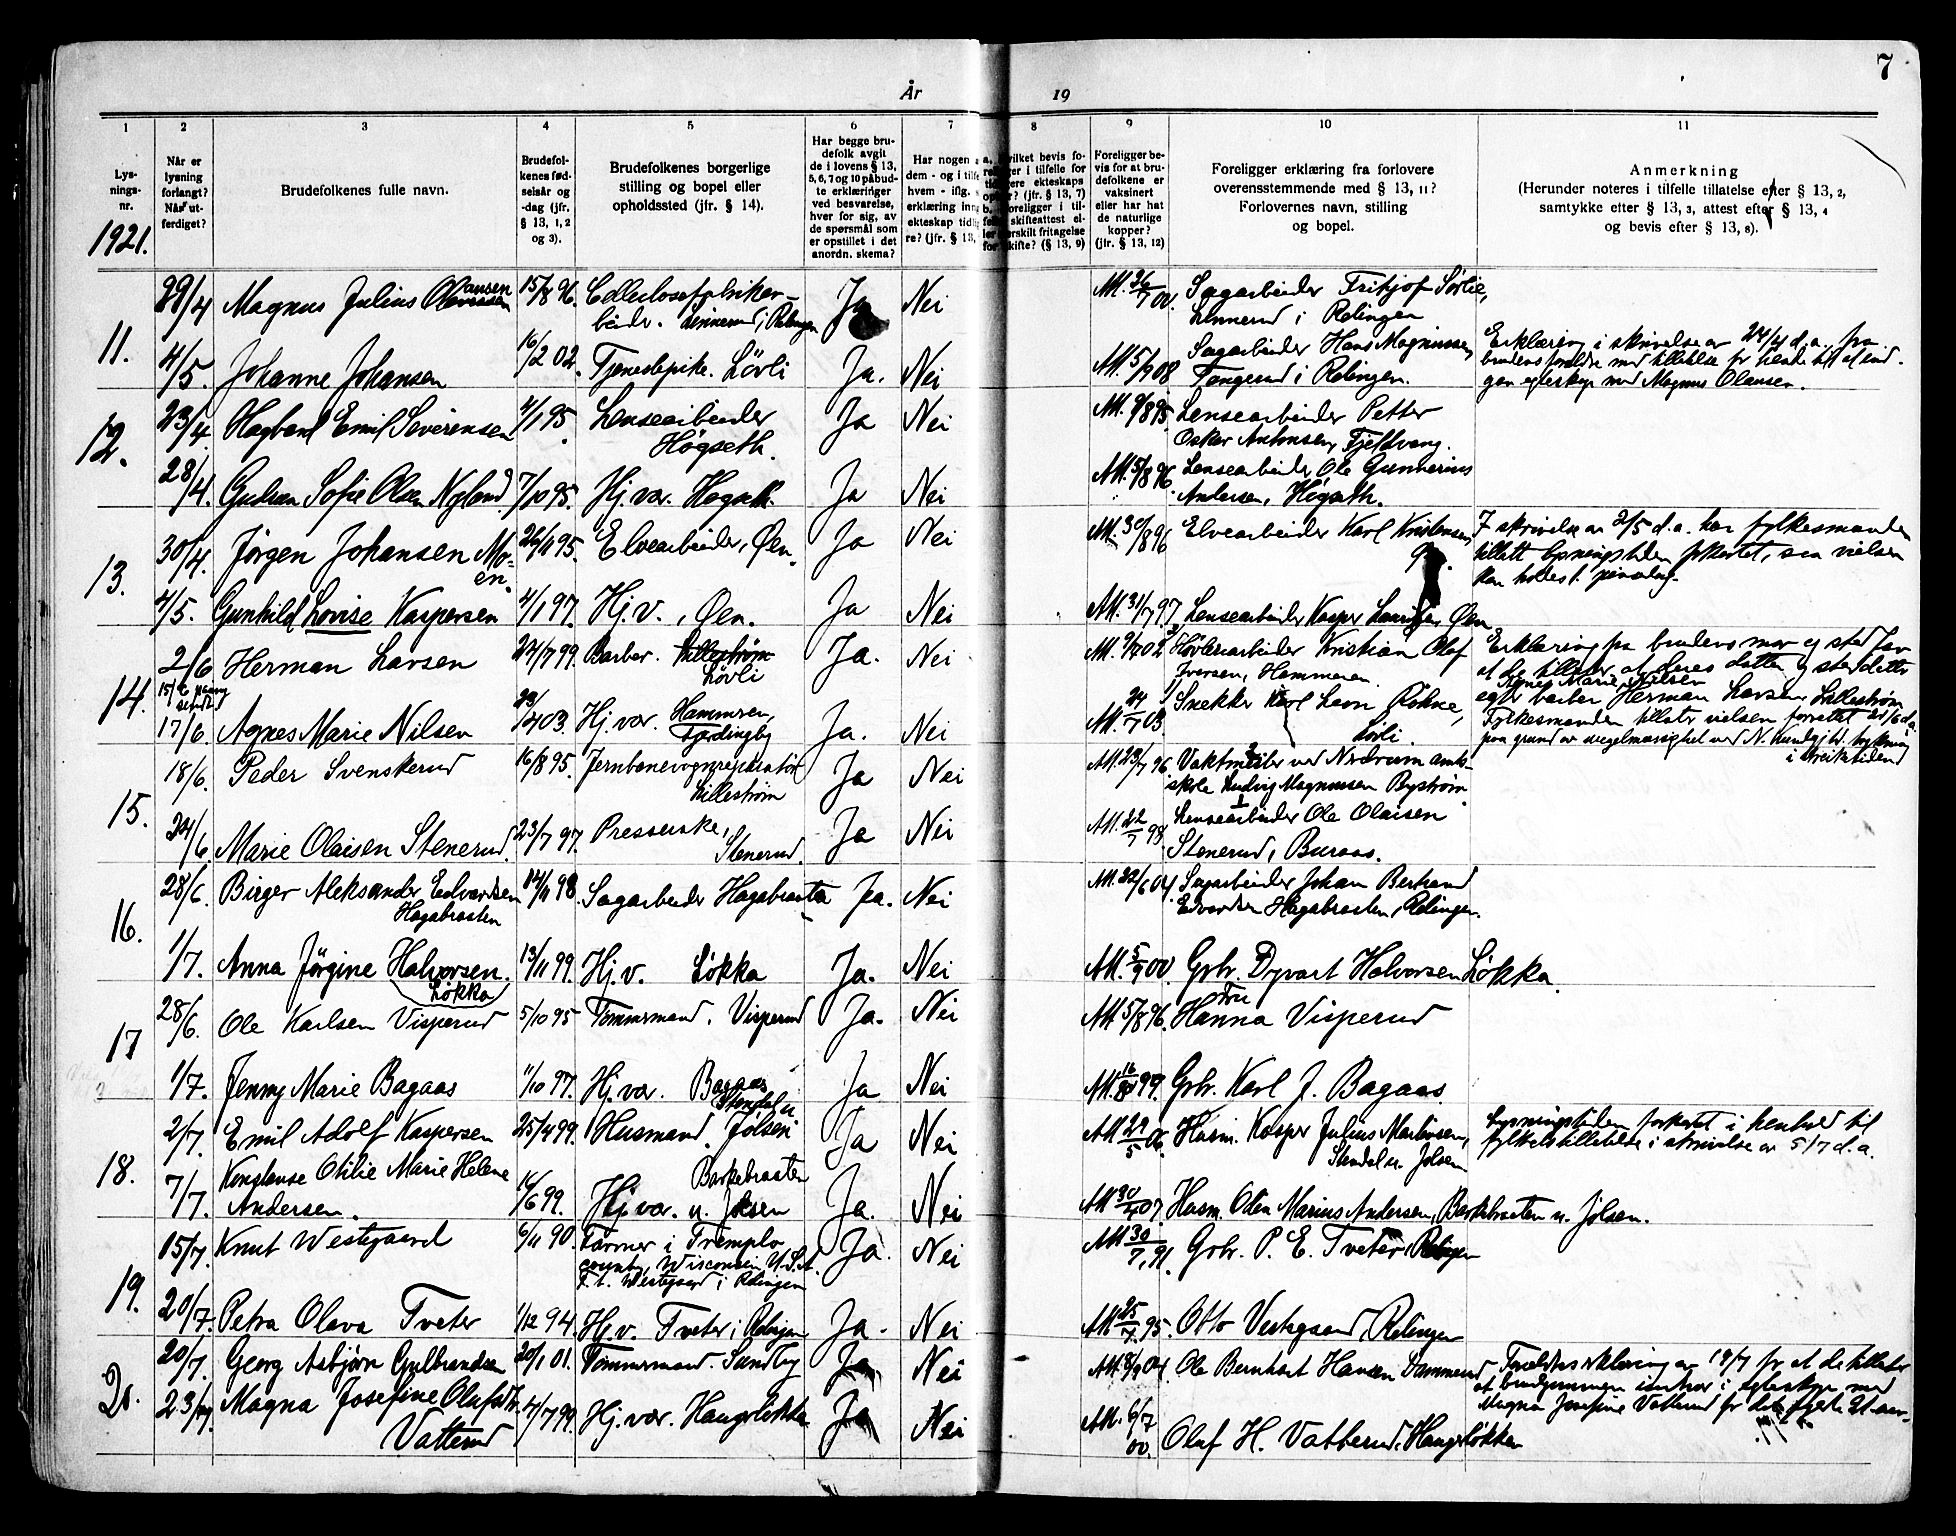 7
År
19
1
2
3
4
5
6
7
8
9
10
11
Lys-
nings-
nr.
Når er
lysning
forlangt?
Når ut-
ferdiget?
Brudefolkenes fulle navn.
Brudefol-
kenes fød-
selsår og
-dag (jfr.
§ 13, 1, 2
og 3).
Brudefolkenes borgerlige
stilling og bopel eller
opholdssted (jfr. § 14).
Har begge bru-
defolk avgit
de i lovens § 13,
5, 6, 7 og 10 påbud-
te erklæringer
ved besvarelse,
hver for sig, av
de spørsmål som
er opstillet i det
anordn. skema?
Har nogen a
dem - og i tilfe
hvem - iflg. s
erklæring inng
ekteskap tidlig
re? (jfr. § 13,
Foreligger be-
vis for at bru-
defolkene er
vaksinert
eller har hat
de naturlige
kopper?
(jfr. § 13, 12)
Foreligger erklæring fra forlovere
overensstemmende med § 13, 11?
Forlovernes navn, stilling
og bopel.
Anmerkning
(Herunder noteres i tilfelle tillatelse efter § 13, 2,
samtykke efter § 13, 3, attest efter § 13, 4
og bevis efter § 13, 8).
1921.
11.
29/4 Magnus Julius Olausen 15/8 96. Ja Nei Att. 26/7 00. Sagarbeider Fritjof Sørlie,
Linnerud i Rælingen
4/5. Johanne Johansen 16/2 02. Tjenestepike. Løvli Ja. Nei Att. 5/9 08 Sagarbeider Hans Magnussen,
Tangerud i Rælingen.
Erklæring i skrivelse av 24/4 d.a. fra
brudens foreldre med tillatelse for hende til at ind-
gaa egteskap med Magnus Olausen.
12.
23/4 Hagbart Emil Severensen 4/1 95. Lensearbeider
Høgseth. Ja Nei Att. 9/8 95 Lensearbeider Petter
Oskar Antonsen, Fjeldvang.
28/4. Gudrun Sofie Olsen Nylend 7/10 95. Hj. vær. Høgseth. Ja Nei Att. 5/8 96 Lensearbeider Ole Gunnerius
Andersen, Høgseth.
13.
30/4. Jørgen Johansen Mo-
en. 26/11 95. Elvearbeider, Øen. Ja Nei Att. 30/8 96 Elvearbeider Karl Kristensen,
I skrivelse av 2/5 d.a. har fylkesmanden
tillatt lysningstiden forkortet, saa vielsen
kan holdes 1. pinsedag.
4/5. Gunhild Lovise Kaspersen 4/1 97. Hj.v., Øen. Ja Nei Att. 31/7 97 Lensearbeider Kasper Lauritsen, Øen
14.
2/6 Herman Larsen 24/7 99. Barber. Lillestrøm
Løvli Ja. Nei Att. 9/7 02 Høvleriarbeider Kristian Olaf
Iversen, Hammeren
Erklæring fra brudens mor og stedfar
at de tillater at deres datter og steddatter
Agnes Marie Nilsen
egter barber Herman Larsen, Lillestrøm
17/6. Agnes Marie Nilsen 23/4 03. Hj. vær. Hammeren,
Fjerdingby Ja. Nei Att. 24/7 03 Snekker Karl Leon Røhne,
Løvli.
Fylkesmanden tillater vielsen forrettet 21/6 d.a.
paa grund av uregelmæssighet ved N. kundgj.bl. trykning
i streiketiden
15.
18/6. Peder Svenskerud 16/8 95. Jernbanevognreparatør
Lillestrøm Ja Nei Att. 23/7 96. Vaktmester ved Nordrum amts-
skole Ludvig Magnussen Byström
24/6. Marie Olaisen Stenerud. 23/7 97. Presserske,
Stenerud. Ja Nei Att. 22/7 98 Lensearbeider Ole Olaisen
Stenerud, Buraas.
16.
28/6. Birger Aleksander Edvardsen
Hagabraaten 14/11 98. Sagarbeider Hagabraata Ja. Nei Att. 22/6 04. Sagarbeider Johan Bertrand
Edvardsen Hagabraaten, Rælingen.
1/7. Anna Jørgine Halvorsen.
Løkka 13/11 99. Hj.v. Løkka Ja. Nei Att. 5/9 00 Grbr. Dyvart Halvorsen Løkka.
17
28/6. Ole Karlsen Visperud 5/10 95 Tømmermand. Visperud Ja. Nei Att. 5/8 96. Fru
Hanna Visperud
1/7. Jenny Marie Bagaas 11/10 97. Hj. vær. Bagaas Ja Nei Att. 16/8 99. Grbr. Karl J. Bagaas.
18.
2/7. Emil Adolf Kaspersen 25/4 99. Husmand. Stendal u.
Jølsen Ja Nei Att. 29/5 06. Husm. Kasper Julius Martinsen,
Stendal u. Jølsen
Lysningstiden forkortet i henhold til
fylkets tillatelse i skrivelse av 5/7 d.a.
7/7. Konstanse Otilie Marie Helene
Andersen. 14/6 99. Hj. vær. Barkebraaten
u. Jølsen Ja. Nei Att. 30/4 07 Husm. Olen Marius Andersen, Barkebraaten u. Jølsen.
19.
15/7. Knut Westgaard 6/11 90. Farmer i Tremplo
county, Wisconsin U.S.A.
F. t. Westgaard i Rælingen Ja. Nei Att. 30/7 91. Grbr. P. E. Tveter, Rælingen
20/7. Petra Oleva Tveter 1/12 94. Hj. v. Tveter i Rælingen Ja. Nei Att. 25/7 95. Otto Vestgaard, Rælingen
20.
20/7. Georg Asbjørn Gulbrandsen 20/1 01. Tømmermand. Sundby Ja Nei Att. 8/9 04 Ole Bernhart Hansen Dammerud
Forældreerklæring av 19/7 for at de tillater
at brudgommen indtrær i egteskap med
Magna Josefine Vatterud før det fyldte 21. aar.
23/7. Magna Josefine Olafsdtr.
Vatterud 4/7 99. Hj. vær. Haugsløkka Ja Nei Att. 6/7 00. Olaf H. Vatterud, Haugsløkken